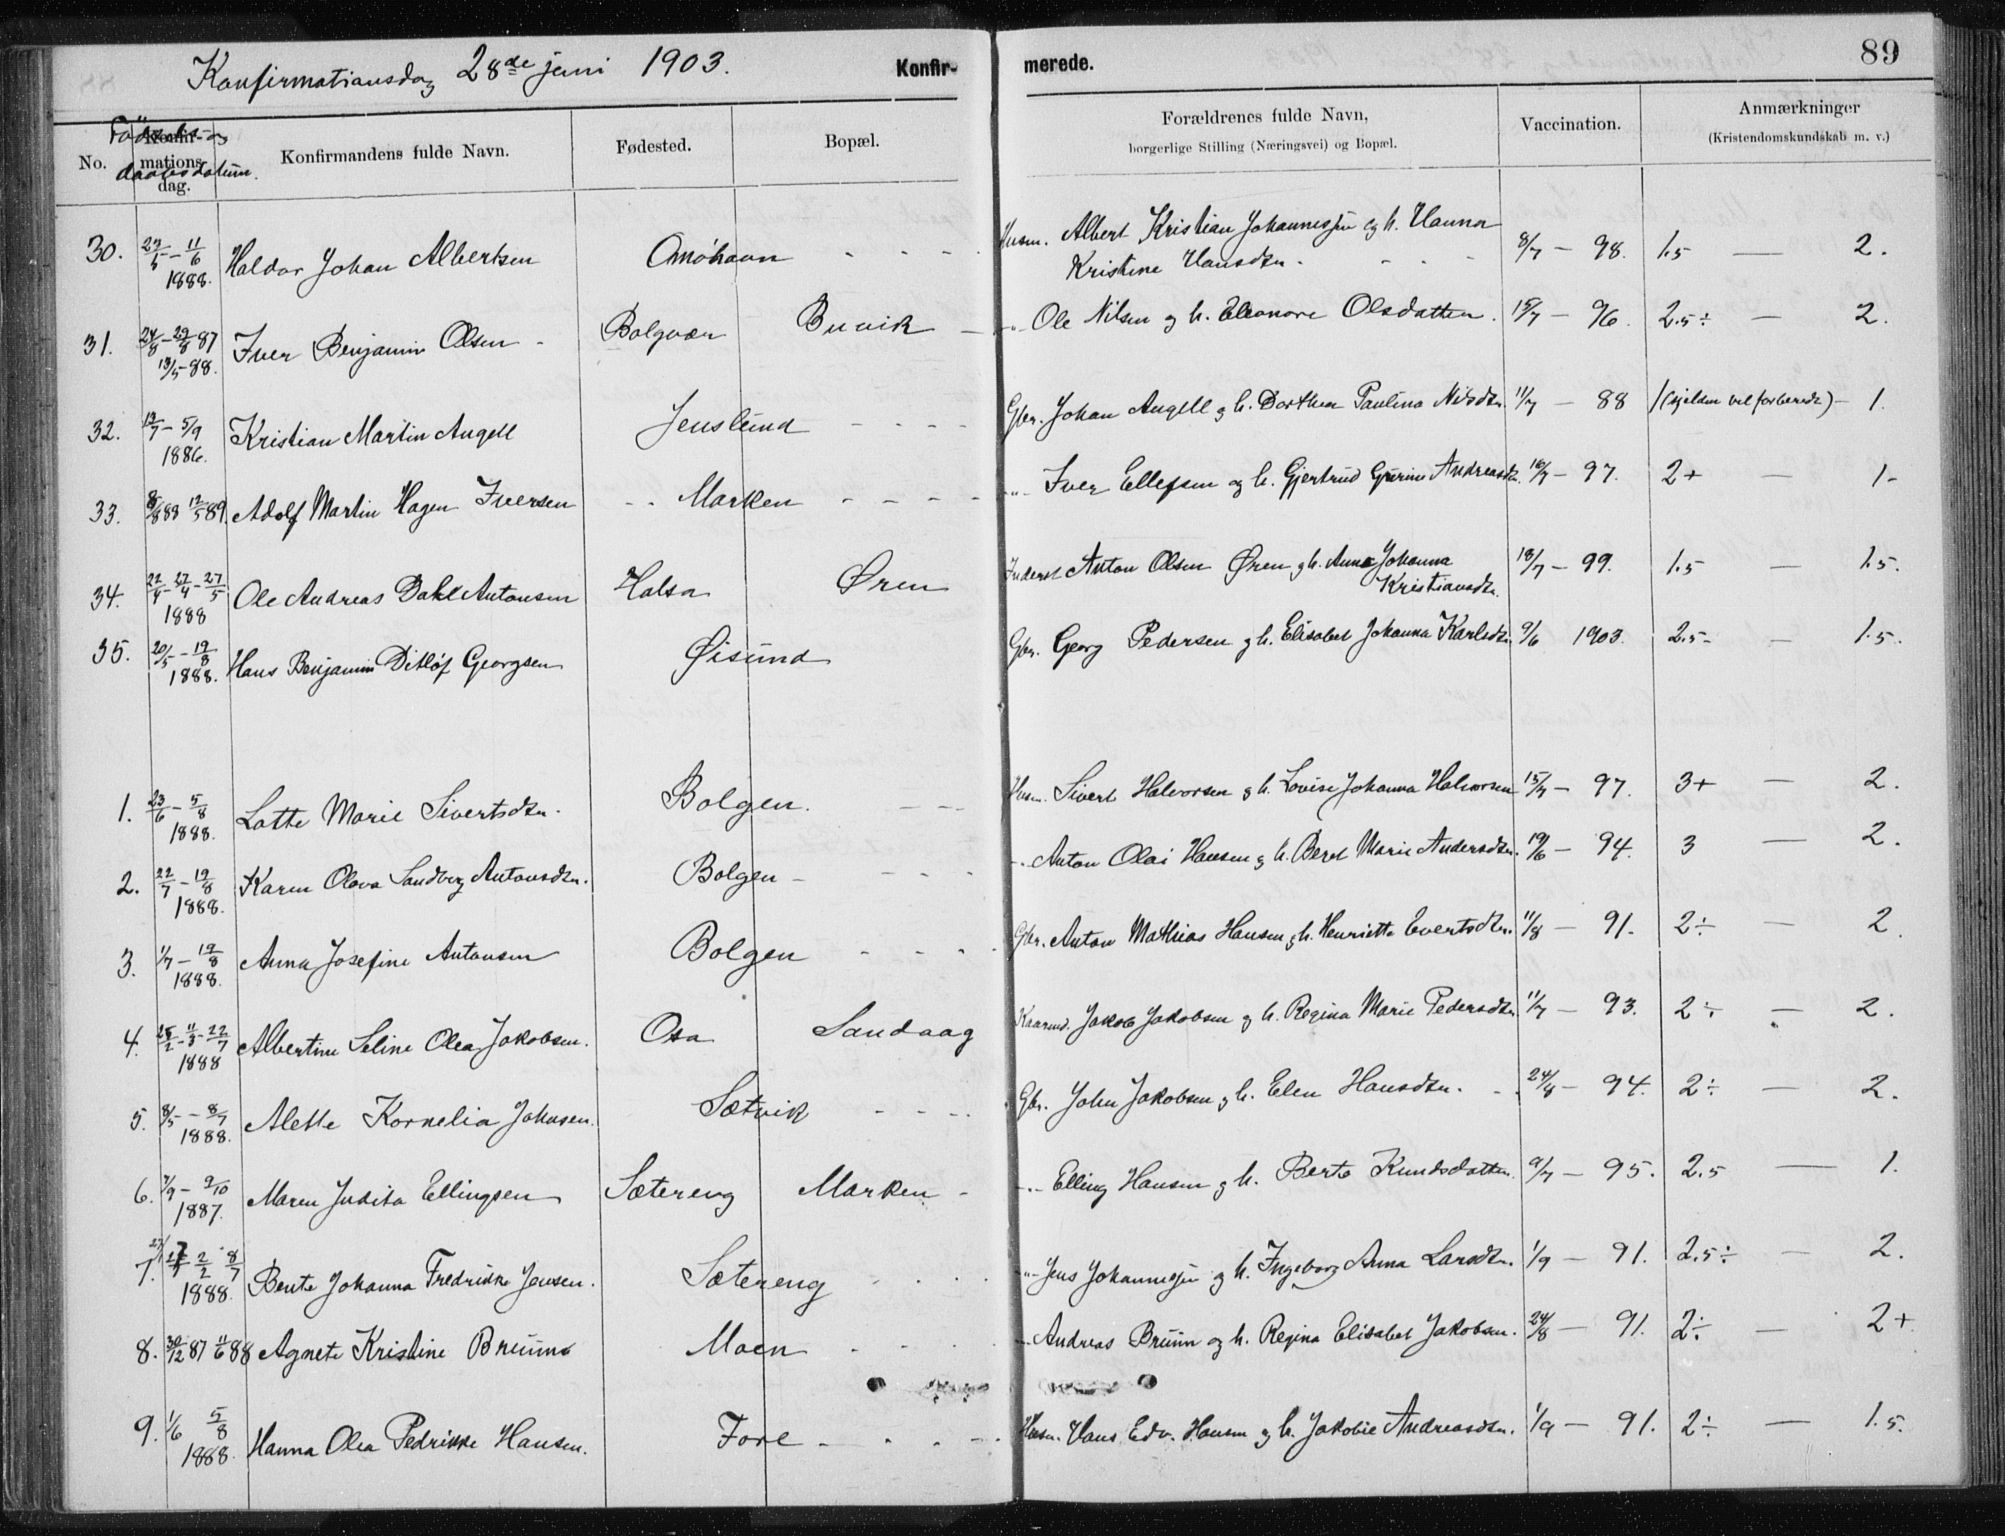 Konfirmationsdag 28de juni 1903. Konfir- merede. 89
No. Fødsels og daabsdatum. Konfirmandens fulde Navn. Fødested. Bopæl. Forældrenes fulde Navn, borgerlige Stilling (Næringsvei) og Bopæl. Vaccination. Anmærkninger (Kristendomskundskab m. v.)
Konfir-
mations
dag.
30. 11/6 1888. Haldor Johan Albertsen Amøhavn - - - - Husm. Albert Kristian Johannessen og h. Hanna
Kristine Hansdtr. - - - 8/7 - 98. 1.5 — 2.
31. 24/8 - 29/8 87 13/5-88. Iver Benjamin Olsen - Bolgvær Buvik - -"- Ole Nilsen og h. Eleonore Olsdatter. 15/7 - 96. 2.5÷ — 2.
32. 19/7 - 5/9 1886. Kristian Martin Angell Jenslund - - - - Gbr. Johan Angell og h. Dorthea Paulina Nilsdtr. 11/7 - 88 1 (sjelden vel forberedt) - 1.
33. 8/8 88 12/5 89. Adolf Martin Hagen Iversen - - Marken - - - - -"- Iver Ellefsen og h. Gjertrud Gurine Andreasdtr. 16/7 - 97. 2+ — 1-
34. 22/4 - 27/4 - 27/5 1888 Ole Andreas Dahl Antonsen Halsa Øren Inderst Anton Olsen Øren og h. Anna Johanna
Kristiansdtr. 18/7 - 99. 1.5 — 1.5.
35. 20/5 - 19/8 1888. Hans Benjamin Ditløf Georgsen Øisund Gbr. Georg Pedersen og h. Elisabet Johanna Karlsdtr. 9/6 1903. 2.5- — 1.5.
1. 23/6 - 5/8 1888. Lotte Marie Sivertsdtr. Bolgen. - - - Husm. Sivert Halvorsen og h. Lovise Johanna Halvorsen 15/7 - 97. 3+ — 2.
2. 22/7 - 19/8 1888. Karen Olava Sandberg Antonsdtr. Bolgen - - - - -"- Anton Olai Hansen og h. Beret Marie Andersdtr. 19/6 - 94. 3 — 2.
3. 1/7 - 19/8 1888. Anna Josefine Antonsen Bolgen - - - - Gbr. Anton Mathias Hansen og h. Henriette Evertsdtr. 11/8 - 91. 2÷ — 2
4. 25/2 - 11/3 - 22/7 1888 Albertine Seline Olea Jakobsen. Osa Sandaag Kaarmd. Jakob Jakobsen og h. Regina Marie Pedersdtr. 11/7 - 93. 2÷ — 2.
5. 8/5 - 8/7 1888. Alette Kornelia Johnsen. Sætvik - - - Gbr. John Jakobsen og h. Elen Hansdtr. - - 24/8 - 94. 2÷ — 2.
6. 7/9 - 9/10 1887. Maren Judita Ellingsen Sætereng Marken - -"- Elling Hansen og h. Berta Knudsdatter. 9/7 - 95. 2.5 — 1.
7. 27/1 2/2 8/7 1888. Bente Johanna Fredrikke Jensen. Sætereng - - - - -"- Jens Johannessen og h. Ingeborg Anna Larsdtr. 1/9 - 91. 2.5÷ — 2.
8. 30/12 87 11/6 88 Agnete Kristine Bruun Moen - - - - -"- Andreas Bruun og h. Regina Elisabet Jakobsen. 24/8 - 91. 2÷ — 2+
9. 1/6 5/8 1888. Hanna Olea Pedrikke Hansen. Fore - - - - Husm. Hans Edv. Hansen og h. Jakobie Andreasdtr. 1/9 - 91. 2÷ — 1.5.